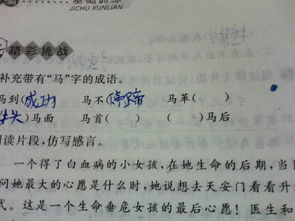 基础训练
JICHU XUNLIAN
精彩挑战
补充带有“马”字的成语。
马到(成功) 马不(停蹄) 马革( )
牛头)马面 马首( ) ( )马后
阅读片段,仿写感言。
一个得了白血病的小女孩,在她生命的后期,当
问她最大的心愿是什么时,她说想去天安门看看升
代。这是一个生命垂危女孩的最后心愿!医生和